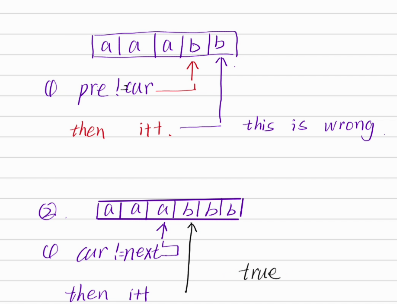 a a a b b
① pre != cur
then i++. this is wrong.
② a a a b b b
① cur != next
then i++ true